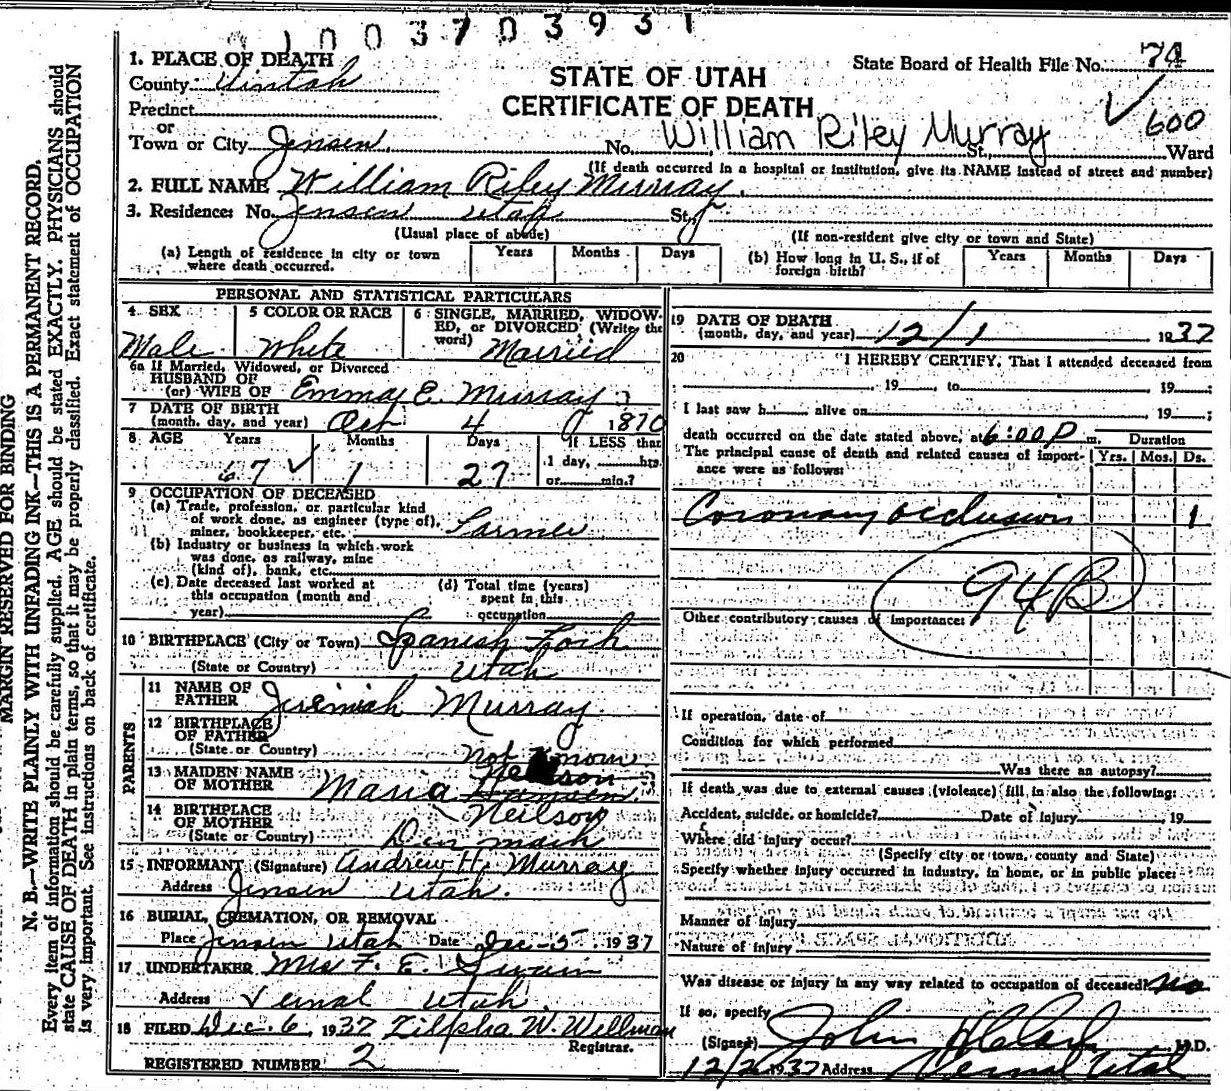 1003703931
1. PLACE OF DEATH
County Uintah
STATE OF UTAH
CERTIFICATE OF DEATH
State Board of Health File No. 74
600
Precinct
or
Town or City Jensen. No. William Riley Murray St., Ward
(If death occurred in a hospital or institution, give its NAME instead of street and number)
2. FULL NAME William Riley Murray.
3. Residence: No. Jensen Utah St.,
(Usual place of abode) (If non-resident give city or town and State)
(a) Length of residence in city or town where death occurred. Years Months Days
(b) How long in U. S., if of foreign birth? Years Months Days
MARGIN RESERVED FOR BINDING
N. B.—WRITE PLAINLY WITH UNFADING INK—THIS IS A PERMANENT RECORD.
Every item of information should be carefully supplied. AGE should be stated EXACTLY. PHYSICIANS should
state CAUSE OF DEATH in plain terms, so that it may be properly classified. Exact statement of OCCUPATION
is very important. See instructions on back of certificate.
PERSONAL AND STATISTICAL PARTICULARS
4 SEX 5 COLOR OR RACE 6 SINGLE, MARRIED, WIDOW-
ED, or DIVORCED (Write the
word)
Male White Married
6a If Married, Widowed, or Divorced
HUSBAND OF
(or) WIFE OF Emma E. Murray
7 DATE OF BIRTH
(month, day, and year) Oct 4 1870
8 AGE Years Months Days If LESS than
1 day, hrs.
67 1 27 or min.?
9 OCCUPATION OF DECEASED
(a) Trade, profession, or particular kind
of work done, as engineer (type of),
miner, bookkeeper, etc. Farmer
(b) Industry or business in which work
was done, as railway, mine
(kind of), bank, etc.
(c) Date deceased last worked at
this occupation (month and
year)
(d) Total time (years)
spent in this
occupation
10 BIRTHPLACE (City or Town) Spanish Fork
(State or Country) Utah
PARENTS
11 NAME OF
FATHER Jerimiah Murray
12 BIRTHPLACE
OF FATHER
(State or Country) Not know
13 MAIDEN NAME
OF MOTHER Maria Hansen
Neilson
14 BIRTHPLACE
OF MOTHER
(State or Country) Denmark
15 INFORMANT (Signature) Andrew H. Murray
Address Jensen Utah.
16 BURIAL, CREMATION, OR REMOVAL
Place Jensen Utah Date Dec-5, 1937
17 UNDERTAKER Mrs F. E. Swain
Address Vernal Utah
18 FILED Dec. 6, 1937 Zilpha W. Wellman
Registrar.
REGISTERED NUMBER 2
19 DATE OF DEATH
(month, day, and year) 12/1 1937
20 I HEREBY CERTIFY, That I attended deceased from
, 19 , to , 19 ;
I last saw h alive on , 19 ;
death occurred on the date stated above, at 6:00 P m. Duration
The principal cause of death and related causes of import-
ance were as follows: Yrs. Mos. Ds.
Coronary occlusion 1
94B
Other contributory causes of importance:
If operation, date of
Condition for which performed
Was there an autopsy?
If death was due to external causes (violence) fill in also the following:
Accident, suicide, or homicide? Date of injury , 19
Where did injury occur?
(Specify city or town, county and State)
Specify whether injury occurred in industry, in home, or in public place:
Manner of injury
Nature of injury
Was disease or injury in any way related to occupation of deceased? No
If so, specify
(Signed) John H Clark M.D.
1937 Address Vernal Utah